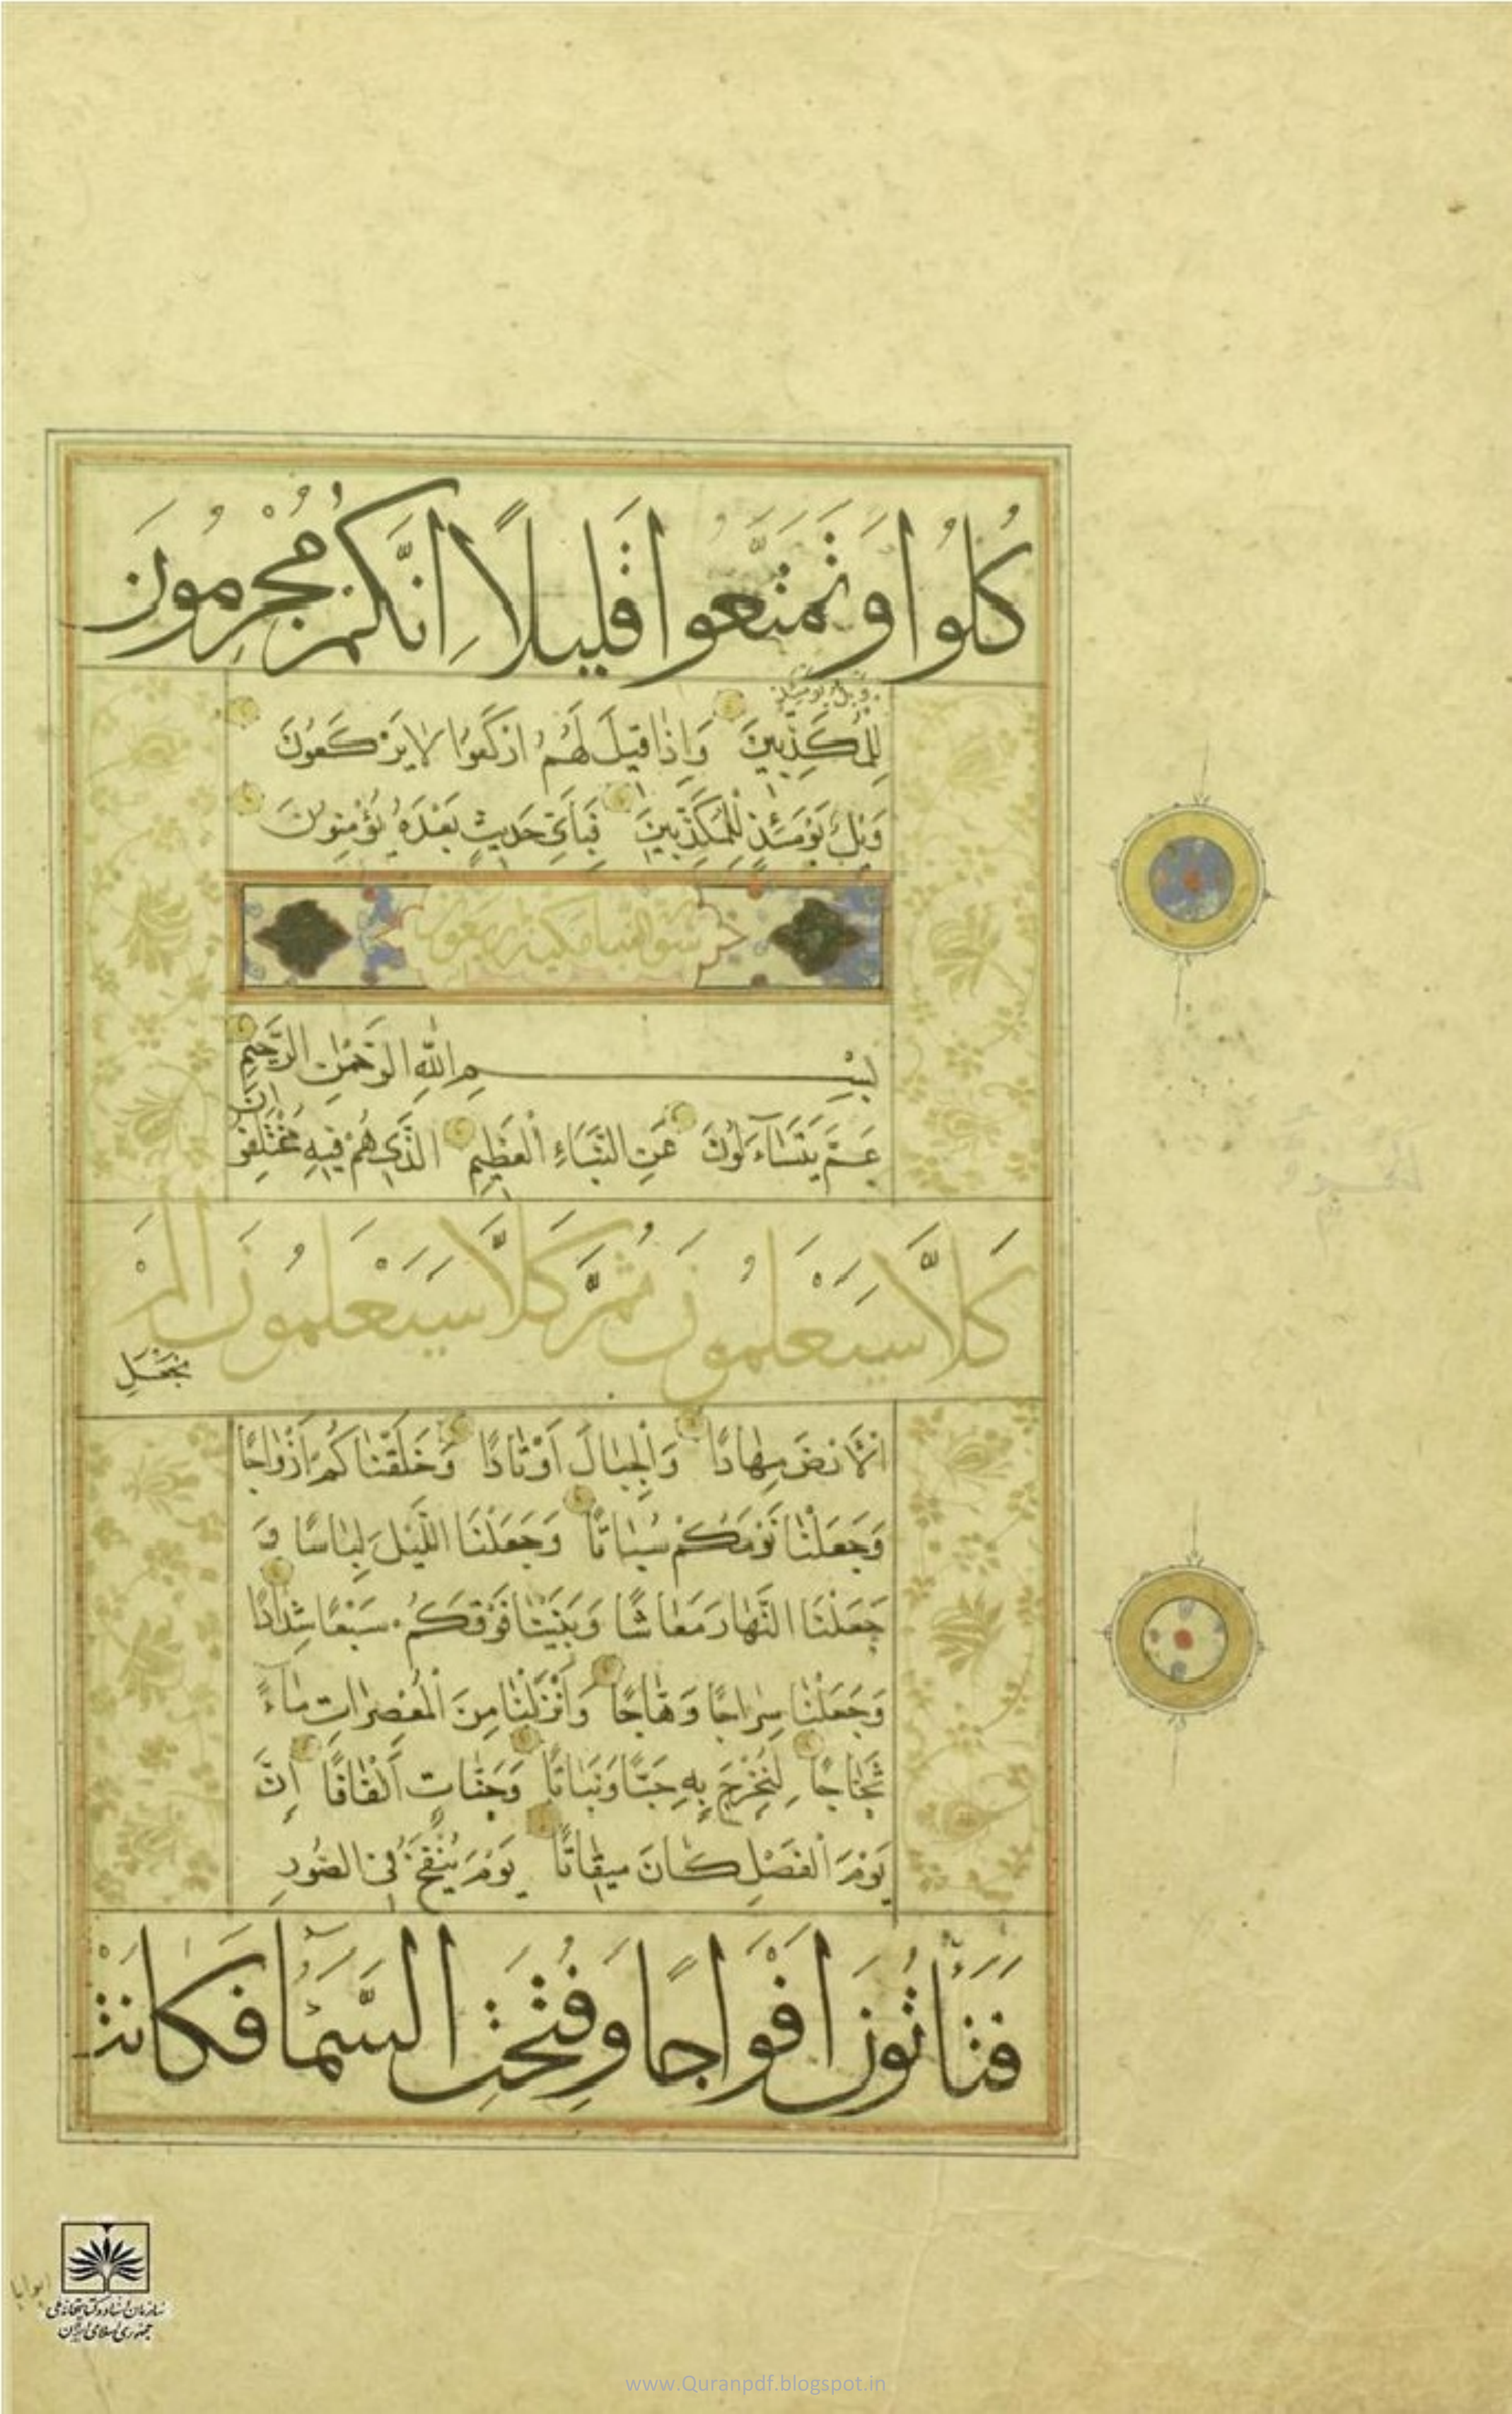 كُلُوا وَتَمَتَّعُوا قَلِيلًا اِنَّكُمْ مُجْرِمُونَ
وَيْلٌ يَوْمَئِذٍ
لِلْمُكَذِّبِينَ وَاِذَا قِيلَ لَهُمُ ارْكَعُوا لَا يَرْكَعُونَ
وَيْلٌ يَوْمَئِذٍ لِلْمُكَذِّبِينَ فَبِاَيِّ حَدِيثٍ بَعْدَهُ يُؤْمِنُونَ
بِسْمِ اللّٰهِ الرَّحْمٰنِ الرَّحِيمِ
عَمَّ يَتَسَآءَلُونَ عَنِ النَّبَاءِ الْعَظِيمِ الَّذِي هُمْ فِيهِ مُخْتَلِفُونَ
كَلَّا سَيَعْلَمُونَ ثُمَّ كَلَّا سَيَعْلَمُونَ اَلَمْ
نَجْعَلِ
الْاَرْضَ مِهَادًا وَالْجِبَالَ اَوْتَادًا وَخَلَقْنَاكُمْ اَزْوَاجًا
وَجَعَلْنَا نَوْمَكُمْ سُبَاتًا وَجَعَلْنَا اللَّيْلَ لِبَاسًا وَ
جَعَلْنَا النَّهَارَ مَعَاشًا وَبَنَيْنَا فَوْقَكُمْ سَبْعًا شِدَادًا
وَجَعَلْنَا سِرَاجًا وَهَّاجًا وَاَنْزَلْنَا مِنَ الْمُعْصِرَاتِ مَآءً
ثَجَّاجًا لِنُخْرِجَ بِهِ حَبًّا وَنَبَاتًا وَجَنَّاتٍ اَلْفَافًا اِنَّ
يَوْمَ الْفَصْلِ كَانَ مِيقَاتًا يَوْمَ يُنْفَخُ فِي الصُّورِ
فَتَأْتُونَ اَفْوَاجًا وَفُتِحَتِ السَّمَآ فَكَانَتْ
ابوابا
سازمان اسناد و کتابخانه ملی
جمهوری اسلامی ایران
www.Quranpdf.blogspot.in